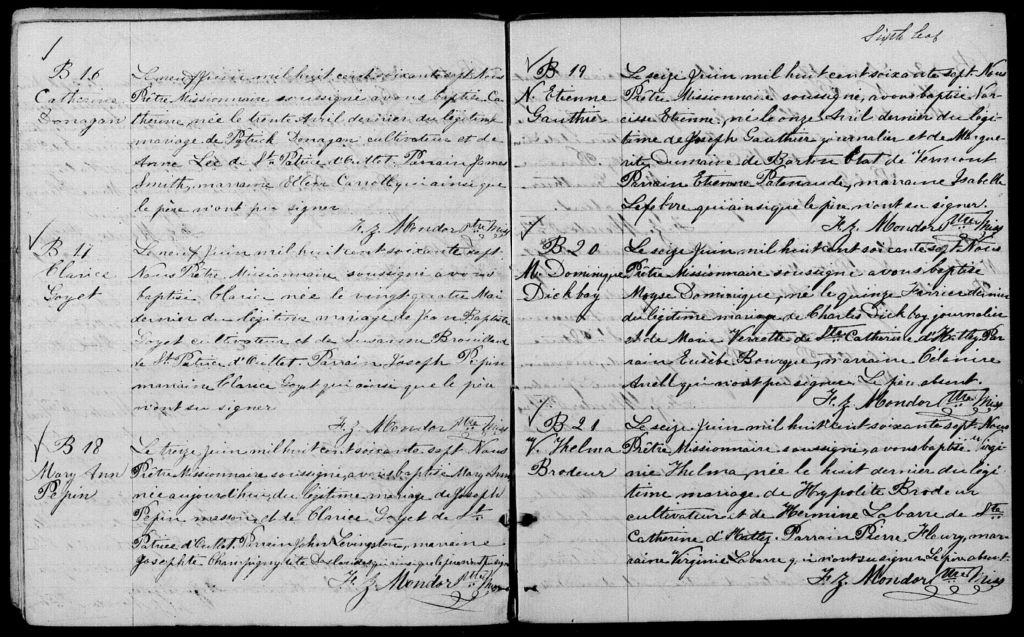 B 16
Catherine
Donagan
Le neuf Juin mil huit cent soixante sept Nous
Prêtre Missionnaire soussigné avons baptisé Ca-
therine, née le trente Avril dernier du légitime
mariage de Patrick Donagan cultivateur et de
Anne Lee de St. Patrice d'Outlet. Parrain James
Smith, marraine Ellen Carroll qui ainsi que
le père n'ont pu signer
F. Z. Mondor Ptre Miss
B 17
Clarice
Goyet
Le neuf Juin mil huit cent soixante sept
Nous Prêtre Missionnaire soussigné avons
baptisé Clarice née le vingt quatre Mai
dernier du légitime mariage de Jean Baptiste
Goyet cultivateur et de Susanne Brouillard
de St Patrice d'Outlet. Parrain Joseph Pepin
marraine Clarice Goyet qui ainsi que le père
n'ont su signer
F. Z. Mondor Ptre Miss
B 18
Mary Ann
Pepin
Le treize Juin mil huit cent soixante sept Nous
Prêtre Missionnaire soussigné, avons baptisé Mary Ann
née aujourd'hui du légitime mariage de Joseph
Pepin masson et de Clarice Goyet de St
Patrice d'Outlet. Parrain John Lovingston, marraine
Josephte Champigny dite Deslandes qui ainsi que le père n'ont pu signer
F. Z. Mondor Ptre Miss
Sixth leaf
B 19
N. Etienne
Gauthier
Le seize Juin mil huit cent soixante sept. Nous
Prêtre Missionnaire soussigné, avons baptisé Nar-
cisse Etienne, né le onze Avril dernier du légi-
time de Joseph Gauthier journalier et de Margue-
rite Dumaine de Barton Etat de Vermont
Parrain Etienne Patenaude, marraine Isabelle
Lefebvre qui ainsi que le père n'ont su signer.
F. Z. Mondor Ptre Miss
B 20
M. Dominique
Dickbay
Le seize Juin mil huit cent soixante sept Nous
Prêtre Missionnaire soussigné avons baptisé
Moyse Dominique, né le quinze Fevrier dernier
du légitime mariage de Charles Dickbay journalier
et de Marie Verrette de Ste Catherine d'Hatly. Par-
rain Eusèbe Bourque, marraine Célenire
qui n'ont pu signer. Le père absent.
F. Z. Mondor Ptre Miss
B 21
V. Thelma
Brodeur
Le seize Juin mil huit cent soixante sept Nous
Prêtre Missionnaire soussigné, avons baptisé Virgi-
nie Thelma, née le huit dernier du légi-
time mariage de Hyppolite Brodeur
cultivateur et de Hermine Labarre de Ste
Catherine d'Hatly. Parrain Pierre Fleury, mar-
raine Virginie Labarre qui n'ont su signer. Le père absent.
F. Z. Mondor Ptre Miss